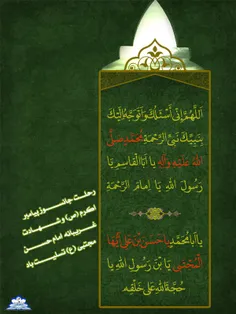 اَللّهُمَّ اِنّی اَسْئَلُكَ وَاَتَوَجَّهُ اِلَیْكَ
بِنَبِیِّكَ نَبِیِّ الرَّحْمَةِ مُحَمَّدٍ صَلَّی
اللهُ عَلَیْهِ وَآلِهِ یا اَبَا الْقاسِمِ یا
رَسُولَ اللهِ یا اِمامَ الرَّحْمَةِ
یا اَبا مُحَمَّدٍ یا حَسَنَ بْنَ عَلِیٍّ اَیُّهَا
الْمُجْتَبی یَا بْنَ رَسُولِ اللهِ یا
حُجَّةَ اللهِ عَلی خَلْقِهِ
رحلت جانسوز پیامبر
اکرم (ص) و شهادت
غریبانه امام حسن
مجتبی (ع) تسلیت باد